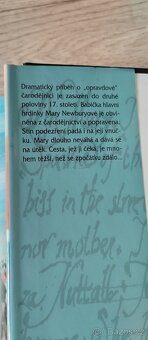 Dramatický příběh o „opravdové“
čarodějnici je zasazen do druhé
poloviny 17. století. Babička hlavní
hrdinky Mary Newburyové je obvi-
něna z čarodějnictví a popravena.
Stín podezření padá i na její vnuč-
ku. Mary dlouho neváhá a dává se
na útěk. Cesta, jež ji čeká, je mno-
hem těžší, než se zpočátku zdálo...